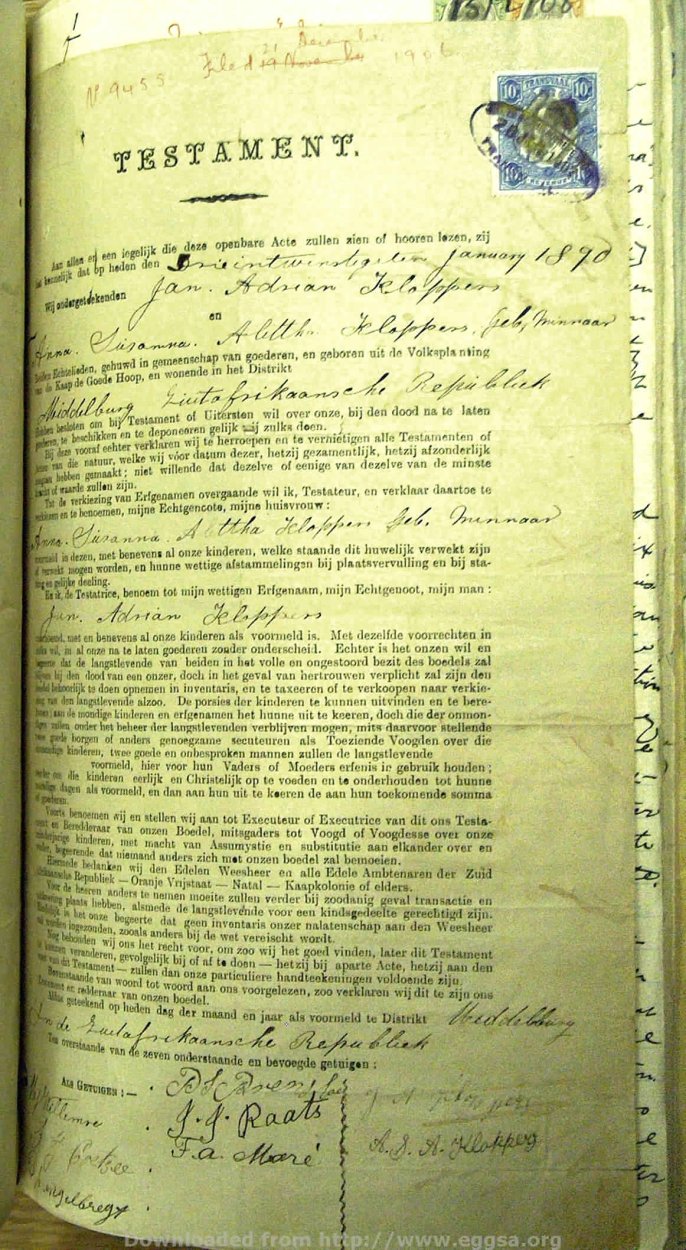 13/1/06
No 9455
Filed 19 November 1906
21 December
TRANSVAAL
10/ 10/
REVENUE
TESTAMENT.
Aan allen en een iegelijk die deze openbare Acte zullen zien of hooren lezen, zij
kennelijk dat op heden den Drieintwenstigsten January 1890
Wij ondergeteekenden Jan. Adrian Kloppers
en
Anna. Susanna. Aletta Kloppers, Geb, Minnaar
Beiden Echtelieden, gehuwd in gemeenschap van goederen, en geboren uit de Volksplanting
van de Kaap de Goede Hoop, en wonende in het Distrikt
Middelburg Zuitafrikaansche Republiek
Hebben besloten om bij Testament of Uitersten wil over onze, bij den dood na te laten
goederen, te beschikken en te deponeeren gelijk wij zulks doen.
Bij deze vooraf echter verklaren wij te herroepen en te vernietigen alle Testamenten of
Acten van die natuur, welke wij vóór datum dezer, hetzij gezamentlijk, hetzij afzonderlijk
mogten hebben gemaakt; niet willende dat dezelve of eenige van dezelve van de minste
kracht of waarde zullen zijn.
Tot de verkiezing van Erfgenamen overgaande wil ik, Testateur, en verklaar daartoe te
verkiezen en te benoemen, mijne Echtgenoote, mijne huisvrouw:
Anna. Susanna. Alettha Kloppers Geb. Minnaar
voormeld in dezen, met benevens al onze kinderen, welke staande dit huwelijk verwekt zijn
of verwekt mogen worden, en hunne wettige afstammelingen bij plaatsvervulling en bij sta-
ing en gelijke deeling.
En ik, de Testatrice, benoem tot mijn wettigen Erfgenaam, mijn Echtgenoot, mijn man:
Jan. Adrian Kloppers
met en benevens al onze kinderen als voormeld is. Met dezelfde voorrechten in
alles wil, in al onze na te laten goederen zonder onderscheid. Echter is het onzen wil en
begeerte dat de langstlevende van beiden in het volle en ongestoord bezit des boedels zal
blijven bij den dood van een onzer, doch in het geval van hertrouwen verplicht zal zijn den
boedel behoorlijk te doen opnemen in inventaris, en te taxeeren of te verkoopen naar verkie-
zing van den langstlevende alzoo. De porsies der kinderen te kunnen uitvinden en te bere-
kenen; aan de mondige kinderen en erfgenamen het hunne uit te keeren, doch die der onmon-
digen zullen onder het beheer der langstlevenden verblijven mogen, mits daarvoor stellende
twee goede borgen of anders genoegzame secuteuren als Toeziende Voogden over die
onmondige kinderen, twee goede en onbesproken mannen zullen de langstlevende
voormeld, hier voor hun Vaders of Moeders erfenis in gebruik houden;
verder om die kinderen eerlijk en Christelijk op te voeden en te onderhouden tot hunne
mondige dagen als voormeld, en dan aan hun uit te keeren de aan hun toekomende somma
of goederen.
Voorts benoemen wij en stellen wij aan tot Executeur of Executrice van dit ons Testa-
ment en Beredderaar van onzen Boedel, mitsgaders tot Voogd of Voogdesse over onze
minderjarige kinderen, met macht van Assumystie en substitutie aan elkander over en
weder, begeerende dat niemand anders zich met onzen boedel zal bemoeien.
Hiermede bedanken wij den Edelen Weesheer en alle Edele Ambtenaren der Zuid
Afrikaansche Republiek — Oranje Vrijstaat — Natal — Kaapkolonie of elders.
Voor de heeren anders te nemen moeite zullen verder bij zoodanig geval transactie en
plaats hebben, alsmede de langstlevende voor een kindsgedeelte gerechtigd zijn.
is het onze begeerte dat geen inventaris onzer nalatenschap aan den Weesheer
worden ingezonden, zooals anders bij de wet vereischt wordt.
Nog behouden wij ons het recht voor, om zoo wij het goed vinden, later dit Testament
te kunnen veranderen, gevolgelijk bij of af te doen — hetzij bij aparte Acte, hetzij aan den
voet van dit Testament — zullen dan onze particuliere handteekeningen voldoende zijn.
Bovenstaande van woord tot woord aan ons voorgelezen, zoo verklaren wij dit te zijn ons
Testament en redderaar van onzen boedel.
Aldus geteekend op heden dag der maand en jaar als voormeld te Distrikt Middelburg
in de Zuitafrikaansche Republiek
Ten overstaande van de zeven onderstaande en bevoegde getuigen:
ALS GETUIGEN:—
J. J. Raats
F. a. Maré
Coetzee
Engelbregt
J A Kloppers
A. S. A. Kloppers
Downloaded from http://www.eggsa.org